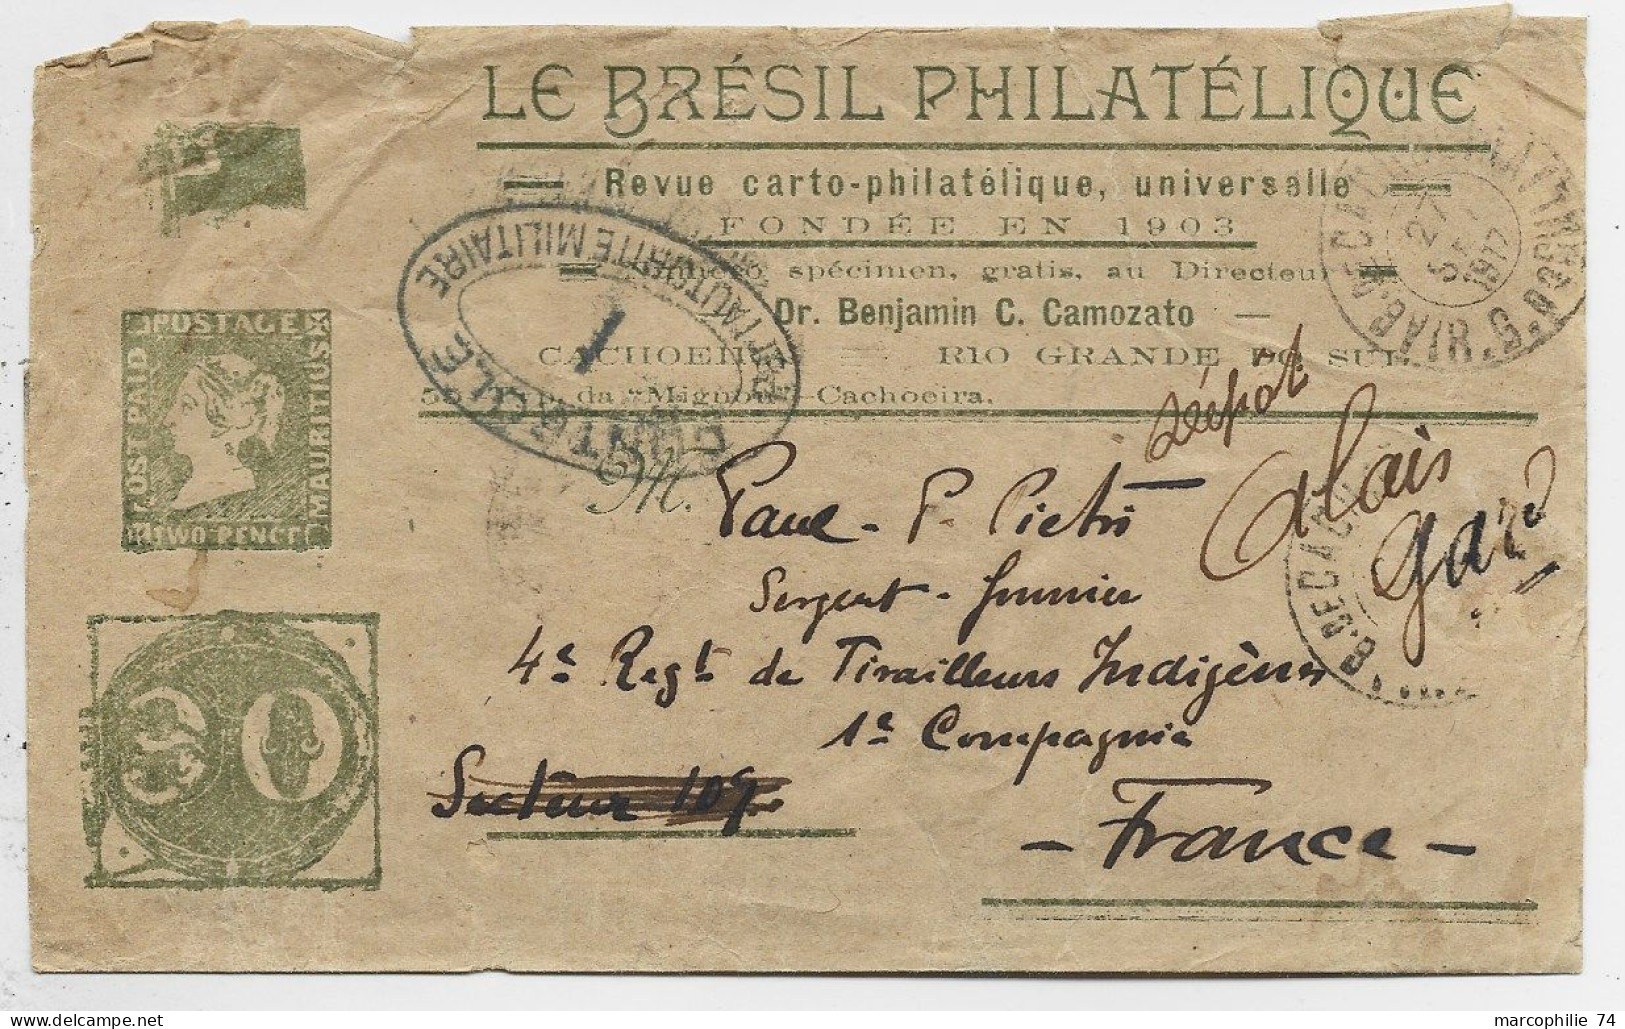 LE BRÉSIL PHILATÉLIQUE
Revue carto-philatélique, universelle
FONDÉE EN 1903
Numero spécimen, gratis, au Directeur
Dr. Benjamin C. Camozato
CACHOEIRA RIO GRANDE DO SUL
Typ. da "Mignon"-Cachoeira.
OUVERT PAR L'AUTORITÉ MILITAIRE
1
POSTAGE
POST PAID
MAURITIUS
TWO PENCE
30
27
Dépot
Alais
Gard
M. Paul - P. Pietri
Sergent-fourrier
4e Regt de Tirailleurs Indigènes
1e Compagnie
Secteur 109
- France -
marcophilie 74